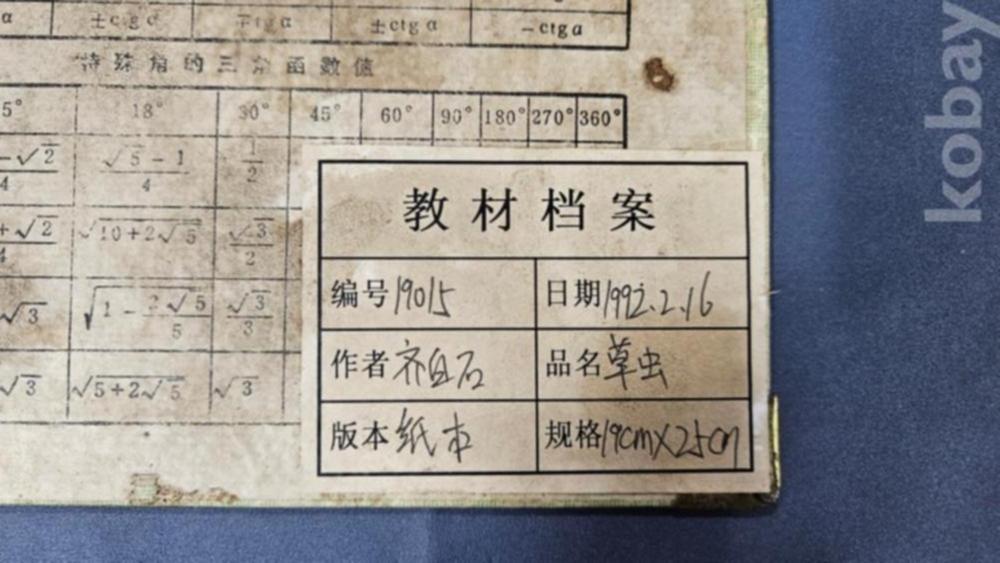 α ±ctgα ∓tgα ±ctgα −ctgα
特殊角的三角函数值
5° 18° 30° 45° 60° 90° 180° 270° 360°
−√2/4 (√5−1)/4 1/2
+√2/4 √10+2√5 √3/2
√3 √1−2√5/5 √3/3
√3 √5+2√5 √3
教材档案
编号19015 日期1992.2.16
作者齐白石 品名草虫
版本纸本 规格19cmX25cm
kobay